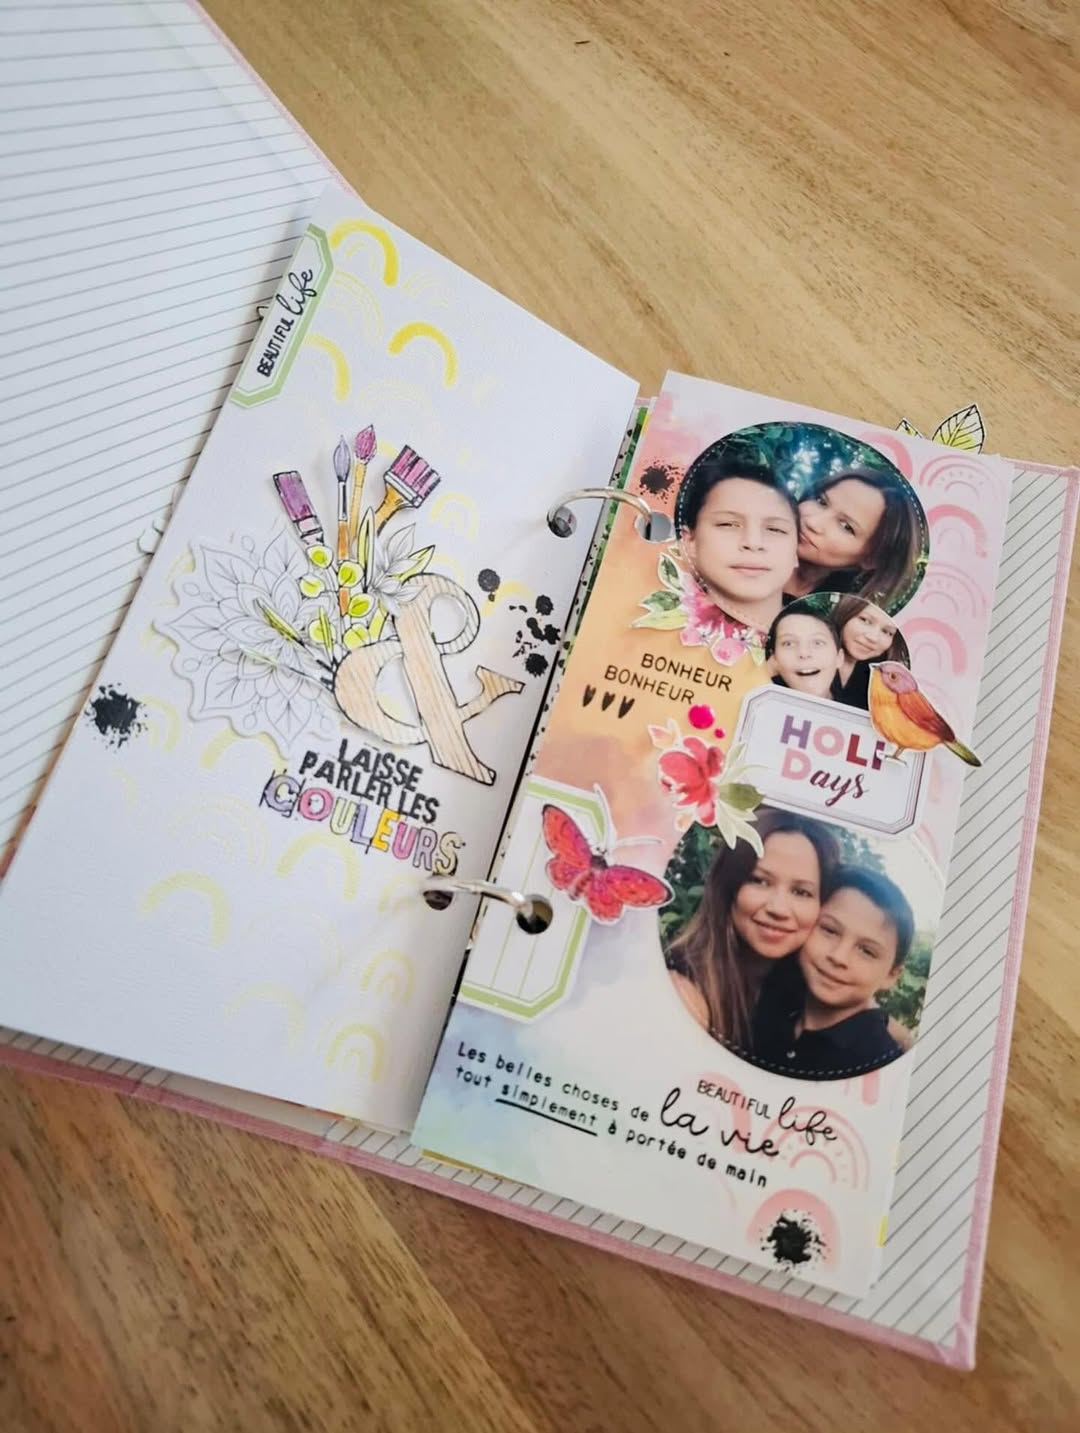 BEAUTIFUL life
&
LAISSE
PARLER LES
COULEURS
BONHEUR
BONHEUR
HOLI
Days
Les belles choses de la vie
tout simplement à portée de main
BEAUTIFUL life